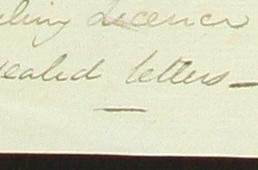 ling Licence
sealed letters —